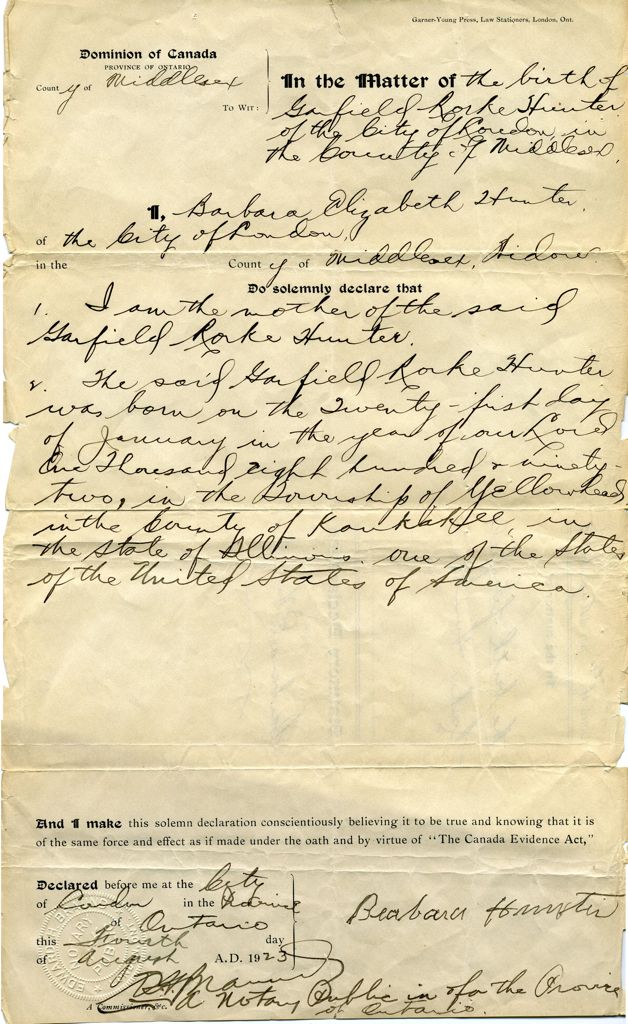 Garner-Young Press, Law Stationers, London, Ont.
Dominion of Canada
PROVINCE OF ONTARIO
County of Middlesex
TO WIT:
In the Matter of the birth of
Garfield Rorke Hunter
of the City of London in
the County of Middlesex.
I, Barbara Elizabeth Hunter,
of the City of London,
in the County of Middlesex, Widow.
Do solemnly declare that
1. I am the mother of the said
Garfield Rorke Hunter.
2. The said Garfield Rorke Hunter
was born on the Twenty-first day
of January in the year of our Lord
One Thousand eight hundred & ninety-
two, in the Township of Yellowhead
in the County of Kankakee, in
the State of Illinois, one of the States
of the United States of America.
And I make this solemn declaration conscientiously believing it to be true and knowing that it is
of the same force and effect as if made under the oath and by virtue of "The Canada Evidence Act,"
Declared before me at the City
of London in the Province
of Ontario
this Fourth day
of August A.D. 1923
Beabara Hunster
A Commissioner, &c.
A Notary Public in & for the Province
of Ontario.